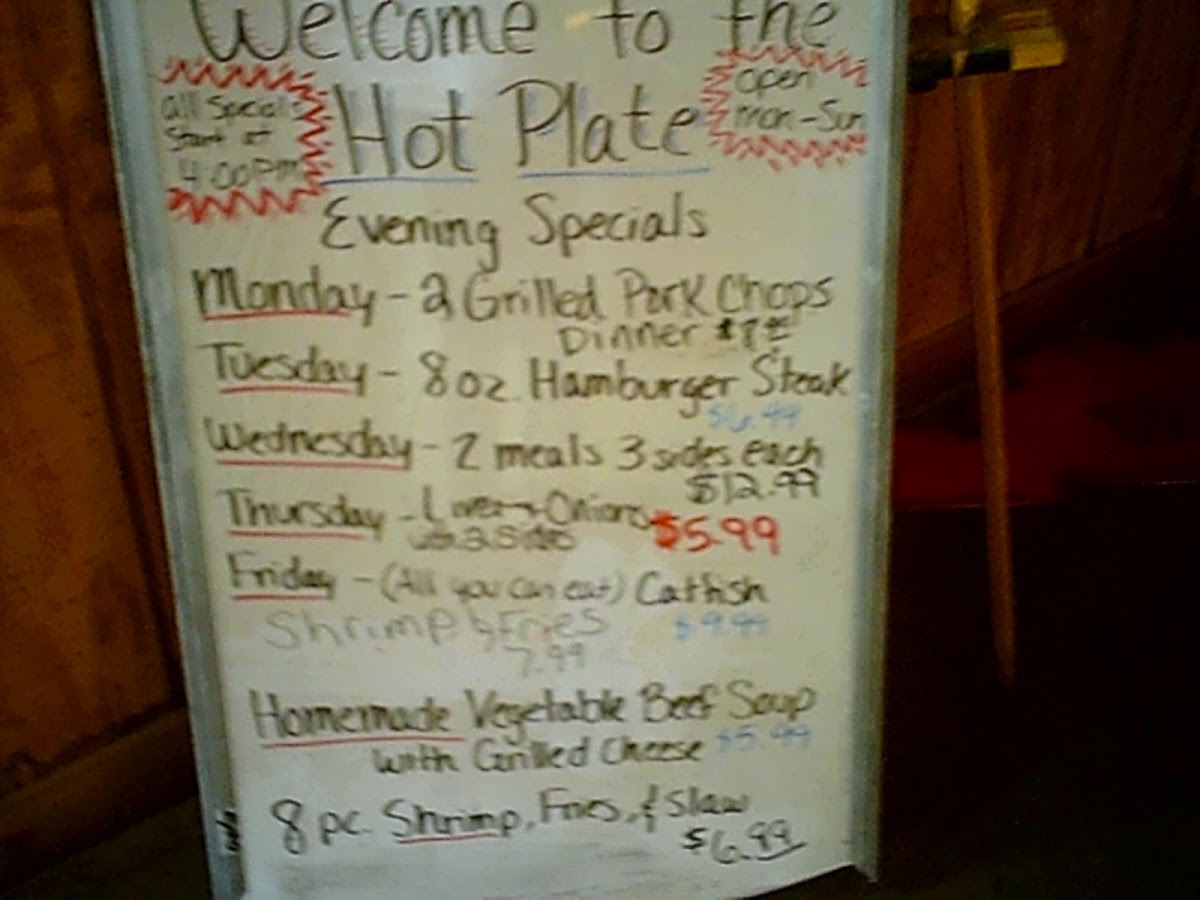 Welcome to the
all Specials
Start at
4:00PM
Hot Plate
open
mon-Sun
Evening Specials
Monday - 2 Grilled Pork Chops
Dinner
Tuesday - 8 oz. Hamburger Steak
$6.99
Wednesday - 2 meals 3 sides each
$12.99
Thursday - Liver + Onions $5.99
Sides
Friday - (All you can eat) Catfish
Shrimp & Fries $9.99
7.99
Homemade Vegetable Beef Soup
with Grilled Cheese $5.99
8 pc. Shrimp, Fries, & Slaw
$6.99